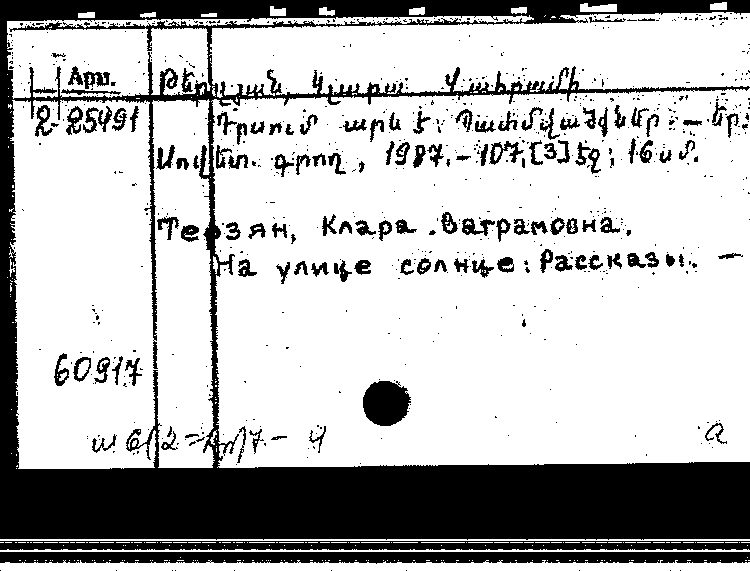 Арм. Թերզյան, Կլարա Վահրամի
2-25491 Դրսում արև է: Պատմվածքներ. — Եր.:
Սովետ. գրող, 1987. - 107,[3] էջ; 16 սմ.
Терзян, Клара Ваграмовна.
На улице солнце: Рассказы. —
60917
а